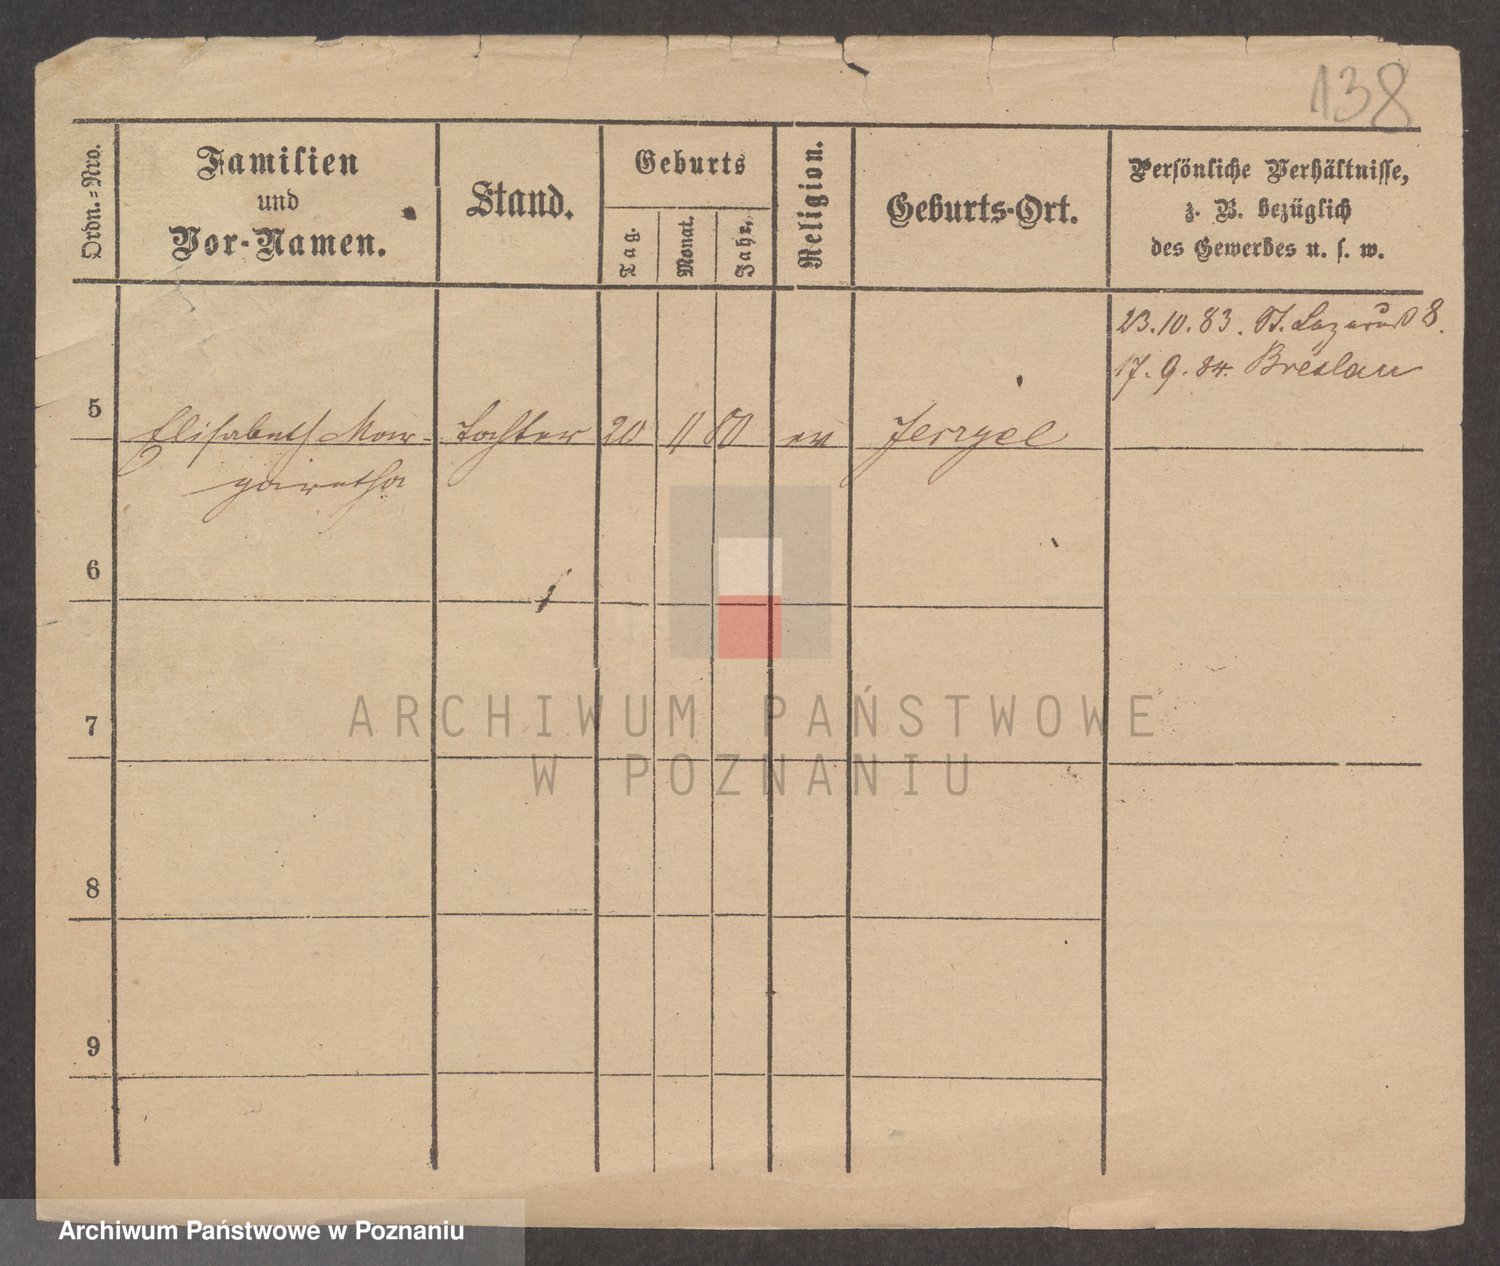 138
Ordn.-Nro.
Familien
und
Vor-Namen.
Stand.
Geburts
Tag.
Monat.
Jahr.
Religion.
Geburts-Ort.
Persönliche Verhältnisse,
z. B. bezüglich
des Gewerbes u. s. w.
23.10.83. St. Lazarus 8.
17.9.84. Breslau
5 Elisabeth Mar- Tochter 20 11 80 ev Jerzyce
garetha
6
7
8
9
ARCHIWUM PAŃSTWOWE
W POZNANIU
Archiwum Państwowe w Poznaniu